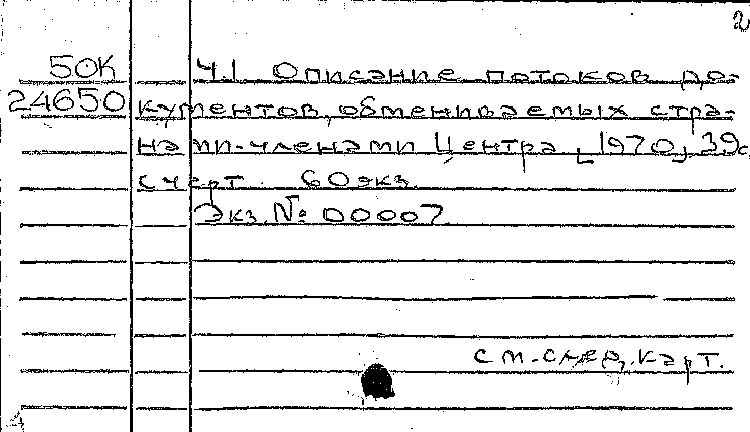 2
50К Ч.1 Описание потоков до-
24650 кументов, обмениваемых стра-
нами-членами Центра [1970], 39с
с черт. 60 экз.
Экз. № 00007
см. след. карт.